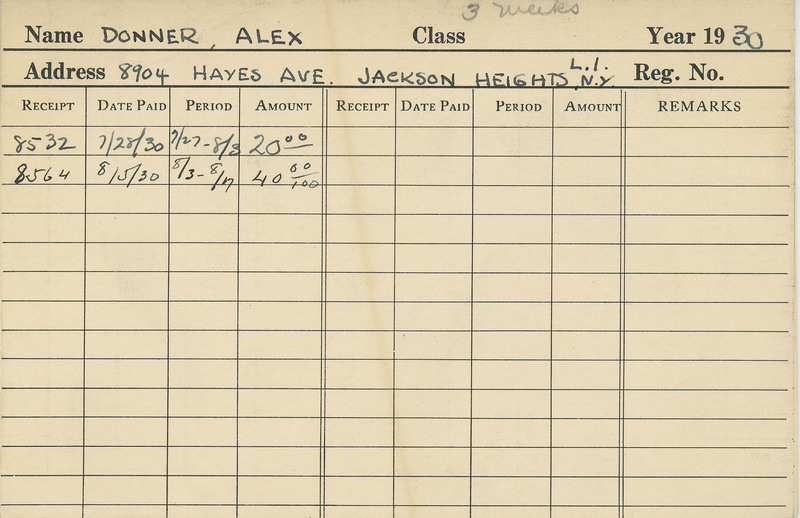 3 weeks
Name DONNER, ALEX Class Year 1930
Address 8904 HAYES AVE. JACKSON HEIGHTS, L.I. N.Y. Reg. No.
RECEIPT DATE PAID PERIOD AMOUNT RECEIPT DATE PAID PERIOD AMOUNT REMARKS
8532 7/28/30 7/27-8/3 20 00
8564 8/5/30 8/3-8/17 40 00/100